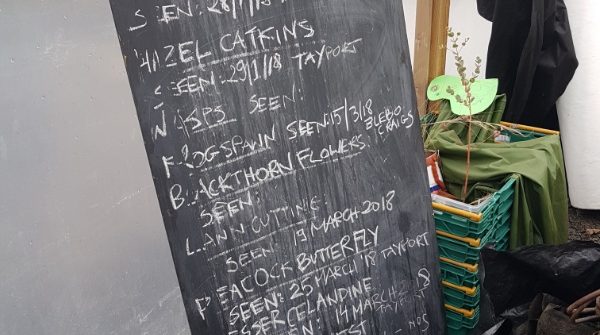 SEEN: 28/1/18
HAZEL CATKINS
SEEN: 29/1/18 TAYPORT
WASPS SEEN:
FROGSPAWN SEEN: 15/3/18 BLEBO CRAIGS
BLACKTHORN FLOWERS:
SEEN:
LAWN CUTTING:
SEEN: 19 MARCH 2018
PEACOCK BUTTERFLY
SEEN: 25 MARCH '18 TAYPORT
LESSER CELANDINE
SEEN: 14 MARCH